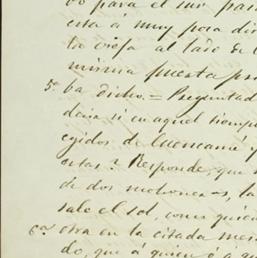 vo para el sur pas
esta á muy poca dis
ta vieja al lado de l
misma puesta pr
5ª ba dicho = Preguntad
dena si en aquel tiemp
egidos de Cuencamé y
estas? Responde, que
de dos mohoneras, la
sale el sol, como quien
6ª otra en la citada mes
do, que á quien é a qu